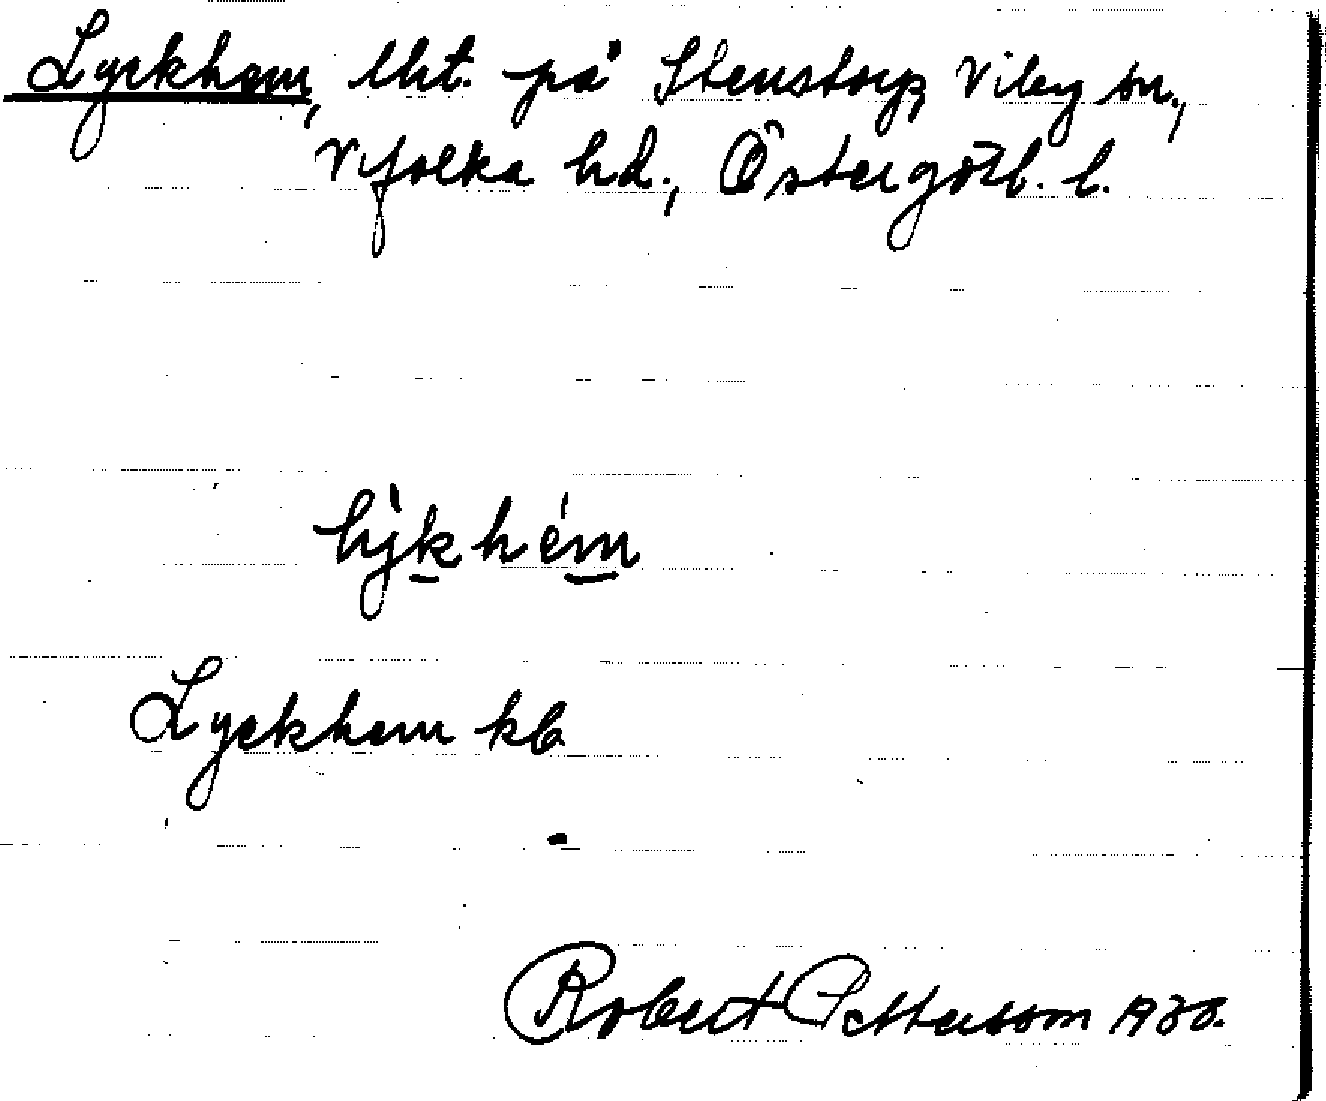 Lyckhem, lht. på Stenstorp, Viby sn.,
Vifolka hd., Östergötl. l.
lỳkhém
Lyckhem kb
Robert Pettersson 1930.